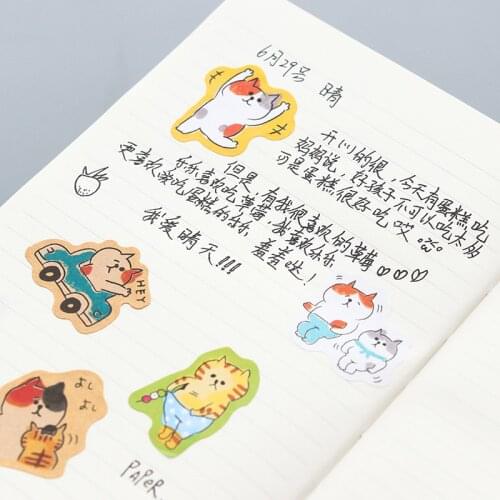 6月29号 晴
开心的很，今天有蛋糕吃
妈妈说，好孩子不可以吃太多
可是蛋糕很好吃哎
但是，有我很喜欢的草莓♡♡♡
乐乐喜欢吃草莓，我喜欢乐乐
更喜欢吃蛋糕的乐乐 羞羞哒！
我爱晴天!!!
HEY
よし
よし
PAPER.